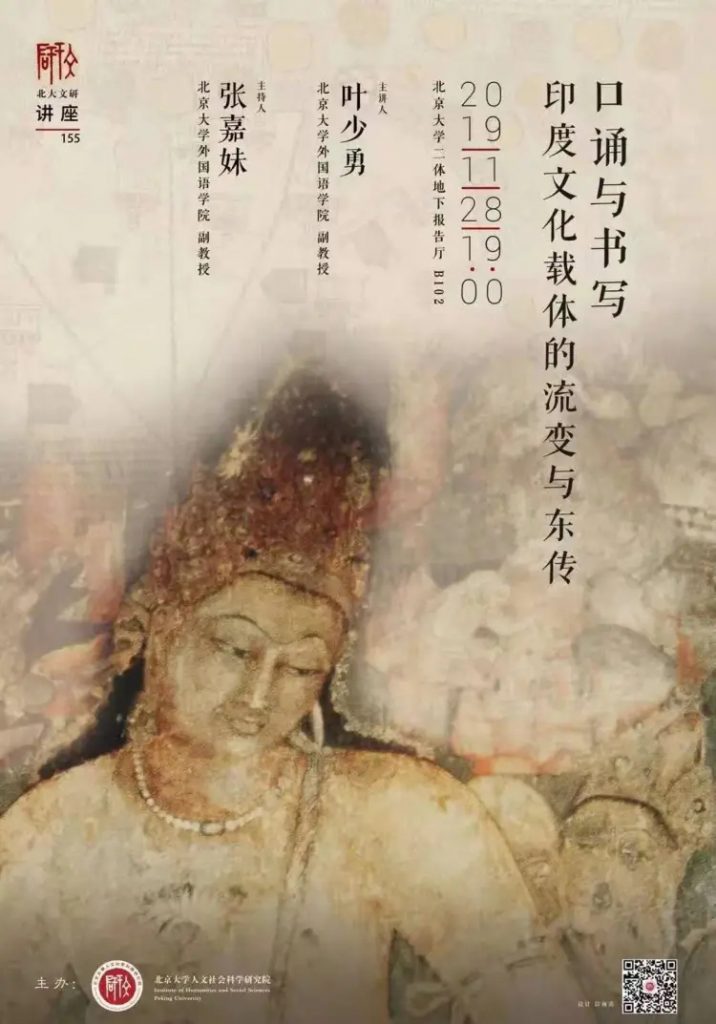 口诵与书写
印度文化载体的流变与东传
2019
11
28
19:00
北京大学二体地下报告厅 B102
主讲人
叶少勇
北京大学外国语学院 副教授
主持人
张嘉妹
北京大学外国语学院 副教授
北大文研
讲座
155
主办：
北京大学人文社会科学研究院
Institute of Humanities and Social Sciences
Peking University
设计